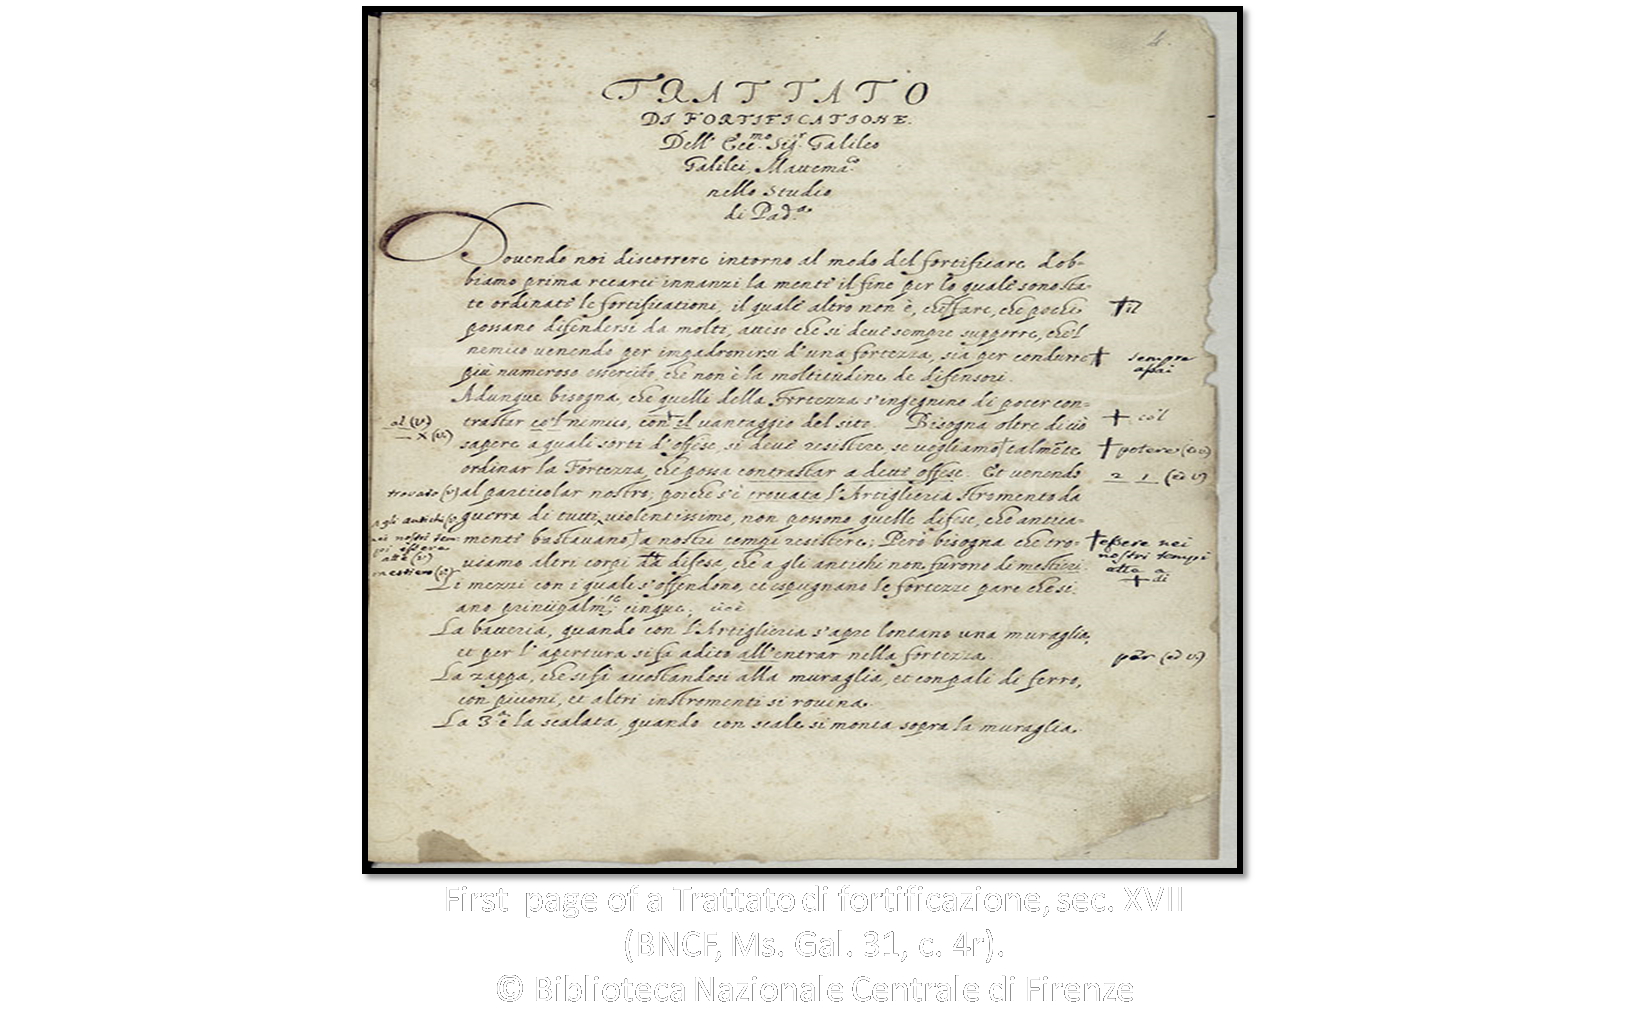 4.
TRATTATO
DI FORTIFICATIONE.
Dell' Ecc.mo Sig.r Galileo
Galilei Mattema.co
nello Studio
di Pad.a
Douendo noi discorrere intorno al modo del fortificare dob-
biamo prima recarci innanzi la mente il fine per lo quale sono sta-
te ordinate le fortificationi, il quale altro non è, che fare, che pochi
✝ il
possano difendersi da molti, atteso che si deue sempre supporre, che'l
nemico uenendo per impadronirsi d'una fortezza, sia per condurre
✝ sempre
assai
più numeroso essercito, che non è la moltitudine de difensori.
Adunque bisogna, che quelli della Fortezza s'ingegnino di poter con-
trastar co'l nemico, con il uantaggio del sito. Bisogna oltre di ciò
al (v)
x (v)
+ co'l
sapere a quali sorti d'offese, si deue resistere, se uogliamo talmẽte
✝ potere (ed v)
ordinar la Fortezza, che possa contrastar a dette offese. Et uenendo
2 1 (ed v)
trouato (v) al particolar nostro, poiche s'è trouata l'Artiglieria stromento da
guerra di tutti uiolentissimo, non possono quelle difese, che antica-
agli antichi (v)
mente bastauano a nostri tempi resistere; Però bisogna che tro-
nei nostri tem-
pi essere
atte (v)
✝ essere nei
nostri tempi
atte a
uiamo altri corpi di difesa, che a gli antichi non furono di mestieri.
mestiero (v)
+ di
Li mezzi con i quale s'offendono, et espugnano le fortezze pare che si-
ano principalm.te cinque, cioè
La batteria, quando con l'Artiglieria s'apre lontano una muraglia,
et per l'apertura si fa adito all'entrar nella fortezza.
per (ed v)
La zappa, che si fa accostandosi alla muraglia, et con pali di ferro,
con picconi, et altri instromenti si rouina.
La 3.a è la scalata, quando con scale si monta sopra la muraglia.
First page of a Trattato di fortificazione, sec. XVII
(BNCF, Ms. Gal. 31, c. 4r).
© Biblioteca Nazionale Centrale di Firenze